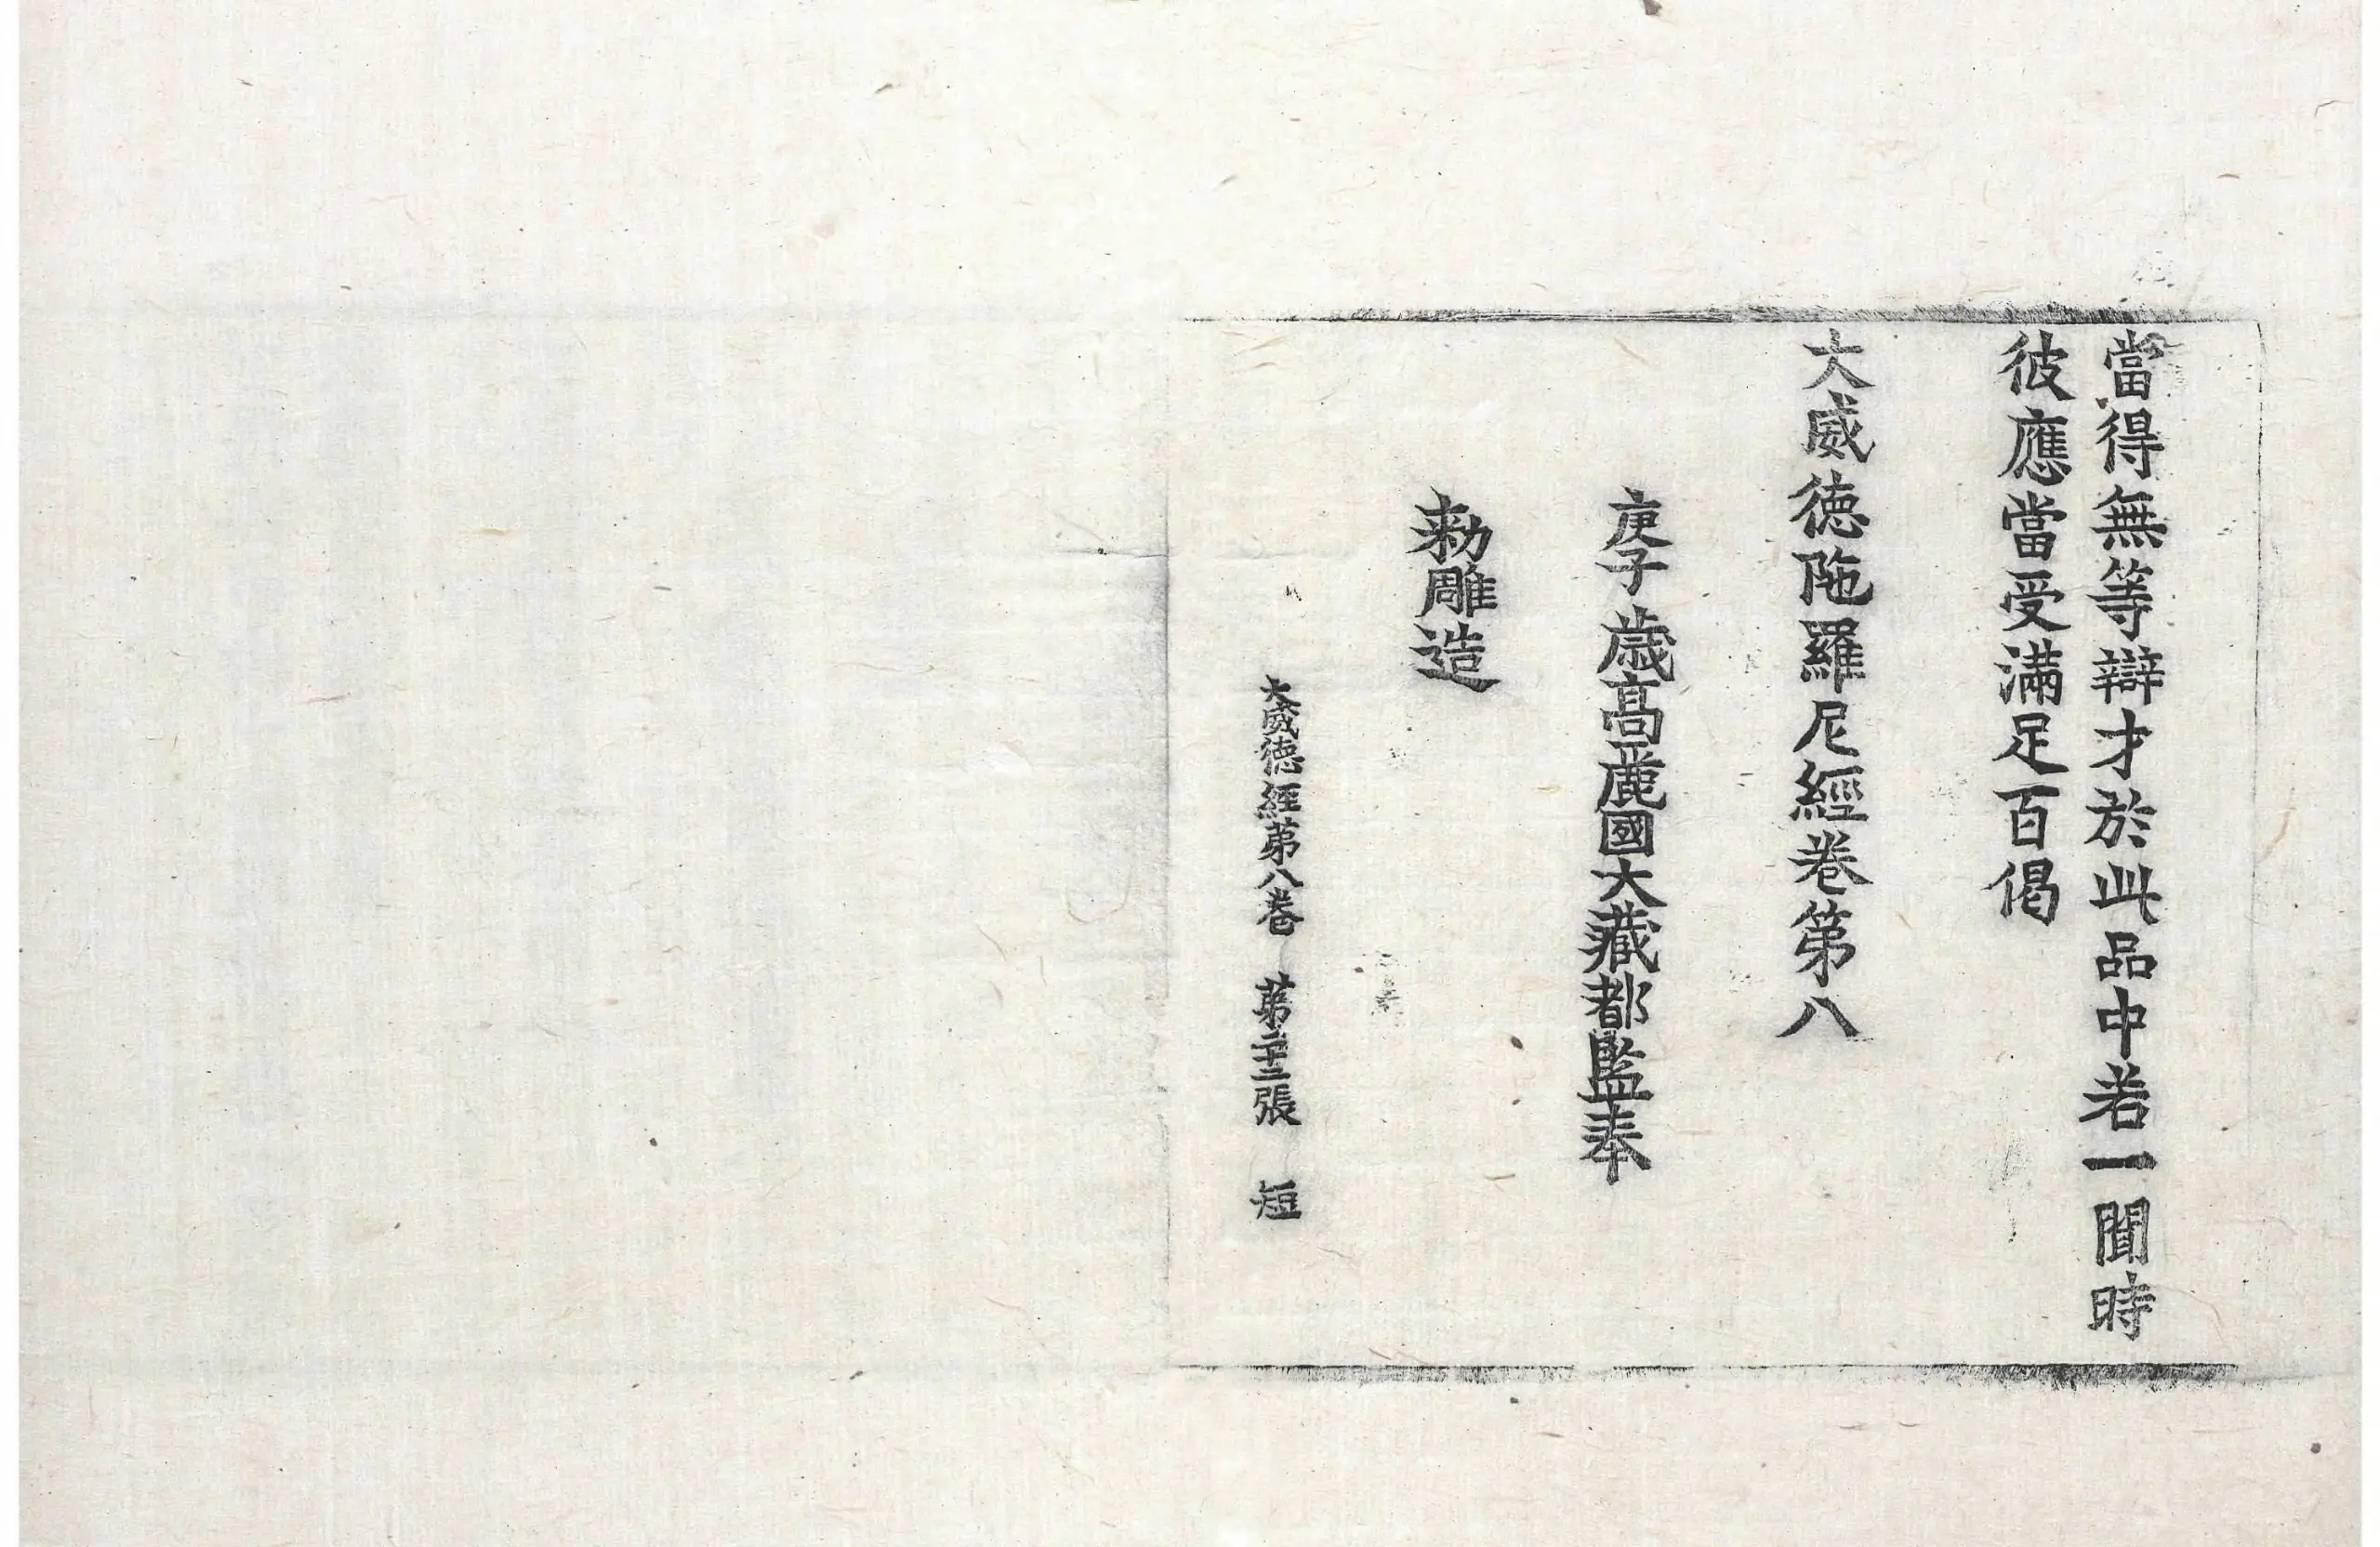 當得無等辯才於此品中若一聞時
彼應當受滿足百偈
大威德陁羅尼經卷第八
庚子歲高麗國大藏都監奉
勅雕造
大威德經第八卷 第二十二張 短